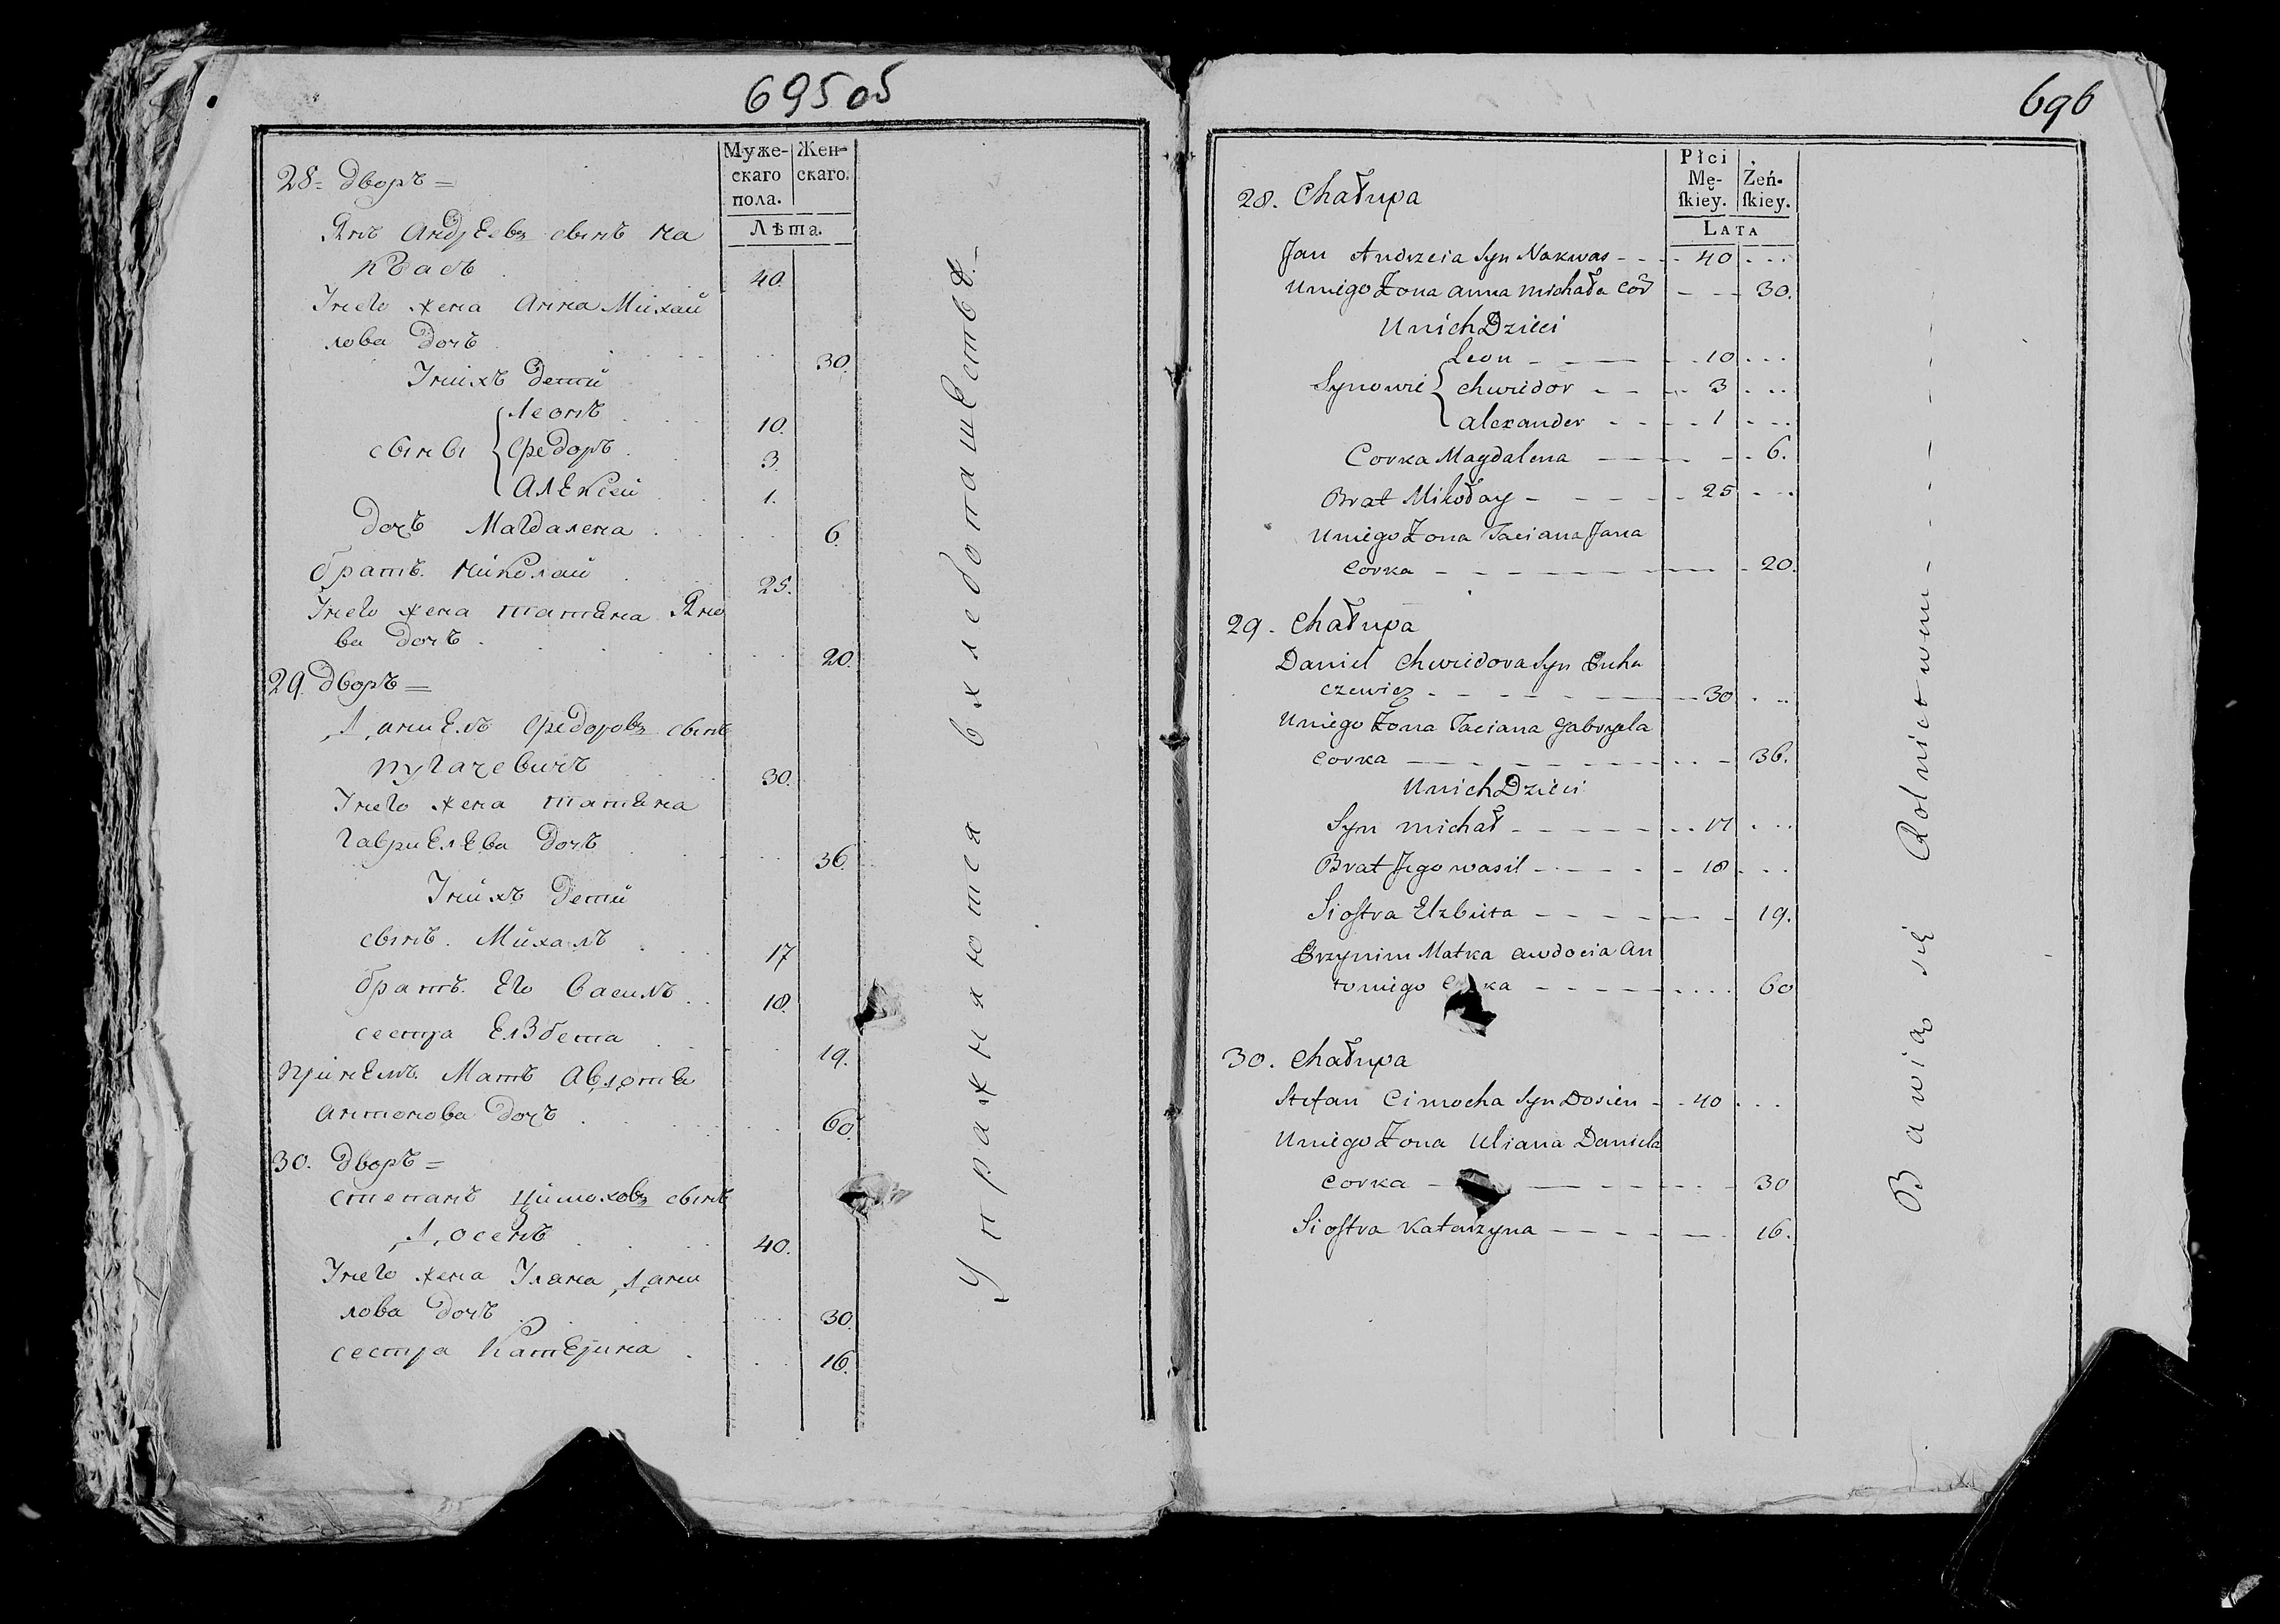 695 об
Муже-
скаго
пола.
Жен-
скаго.
Лѣта.
28 = дворъ =
Янъ Андреевъ сынъ На
квасъ 40.
Унего жена Анна Михай
лова дочъ 30.
Унихъ дети
Леонъ 10.
сыны Федоръ 3.
Алексей 1.
дочъ Магдалена 6.
братъ Николай 25.
Унего жена татьяна Яно
ва дочъ 20.
29 дворъ =
Даниелъ Федоровъ сынъ
пугачевичъ 30.
Унего жена татьяна
гавриелева дочъ 36.
Унихъ дети
сынъ Михалъ 17
братъ Его Василъ 18.
сестра Елзбета 19.
принемъ Матъ Авдотья
антонова дочъ 60.
30. дворъ =
степанъ Цимоховъ сынъ
Досенъ 40.
Унего жена Уляна Дани
лова дочъ 30.
сестра Катерина 16.
Упражняются в хлебопашестве. –
696
Płci
Mę-
ſkiey.
Zeń-
ſkiey.
LATA
28. Chałupa
Jan Andrzeia Syn Nakwas - - - 40 . . .
Uniego Żona anna michała Cór - - - 30.
Unich Dzieci
Leon - - - 10 . . .
Synowie chwiedor - - - 3 . . .
alexander - - - 1 . . .
Corka Magdalena - - - 6.
Brat Mikołay - - - 25 . . .
Uniego Żona Taciana Jana
Corka - - - 20.
29. Chałupa
Daniel Chwiedora Syn Puha
czewicz - - - 30 . . .
Uniego Żona Taciana Gabryela
Corka - - - 36.
Unich Dzieci
Syn michał - - - 17 . . .
Brat Jego wasil - - - 18 . . .
Siostra Elzbieta - - - 19.
Przynim Matka awdocia An
toniego C ka - - - 60
30. Chałupa
Stefan Cimocha Syn Dosien - - 40 . . .
Uniego Żona Uliana Daniela
Corka - - - 30
Siostra Katarzyna - - - 16.
Bawią się Rolnictwem - - - -